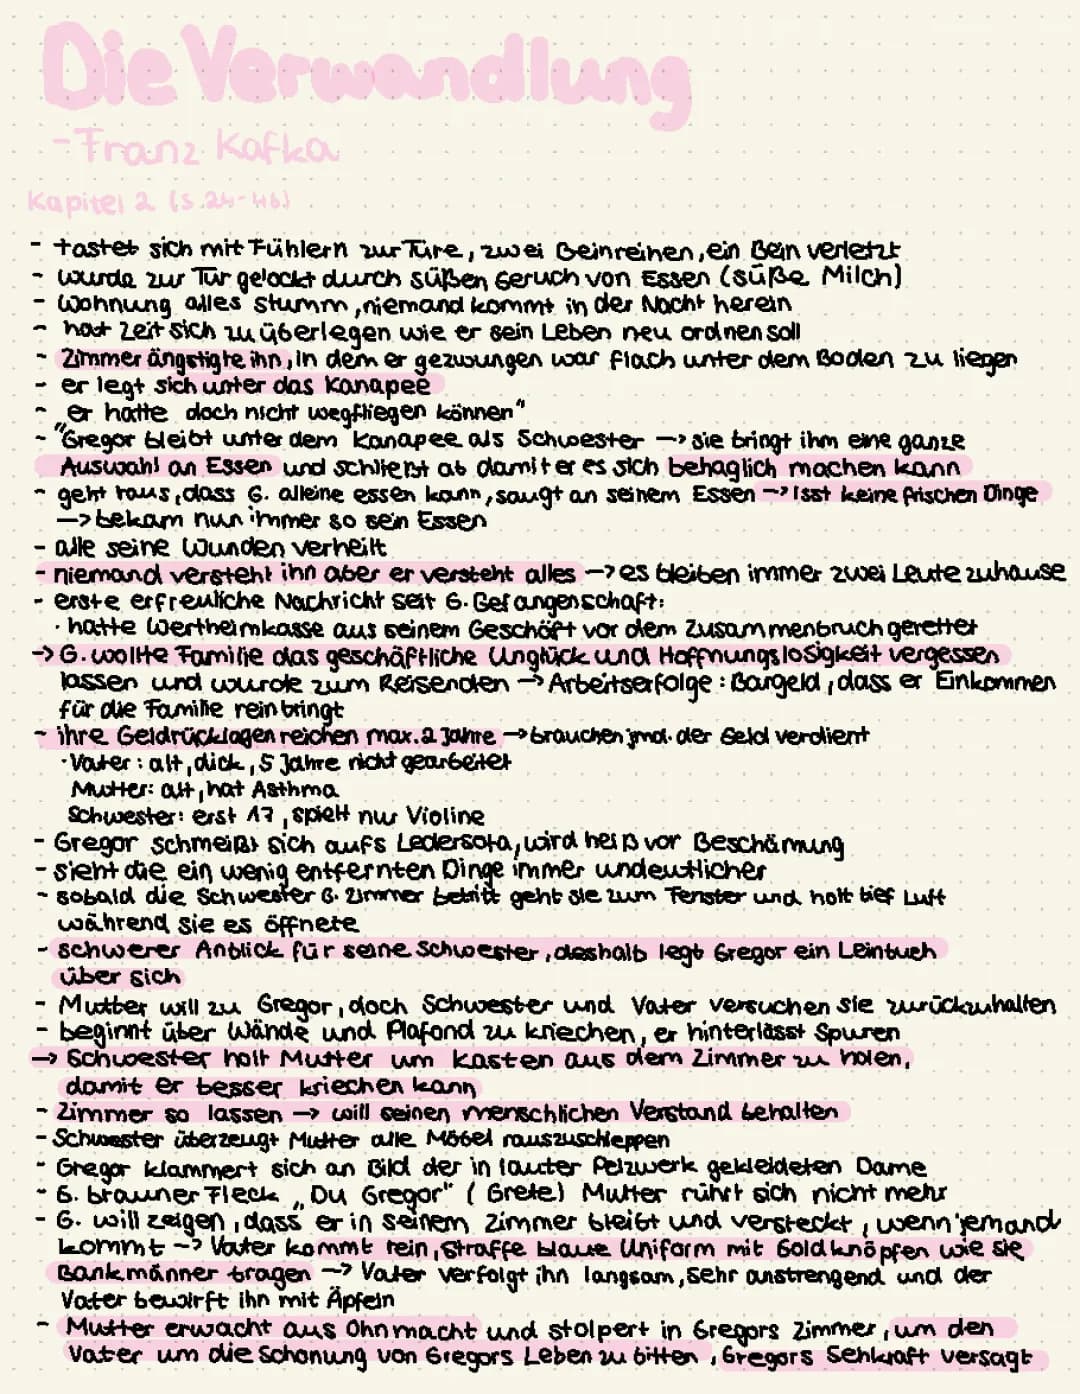 Die Verwandlung
- Franz Kafka
Kapitel 2 (S.24-46)
- tastet sich mit Fühlern zur Türe, zwei Beinreihen, ein Bein verletzt
- wurde zur Tür gelockt durch süßen Geruch von Essen (süße Milch)
- Wohnung alles stumm, niemand kommt in der Nacht herein
- hat Zeit sich zu überlegen wie er sein Leben neu ordnen soll
- Zimmer ängstigte ihn, in dem er gezwungen war flach unter dem Boden zu liegen
- er legt sich unter das Kanapee
- er hatte doch nicht wegfliegen können"
- "Gregor bleibt unter dem Kanapee als Schwester -> sie bringt ihm eine ganze
Auswahl an Essen und schließt ab damit er es sich behaglich machen kann
- geht raus, dass G. alleine essen kann, saugt an seinem Essen -> isst keine frischen Dinge
-> bekam nun immer so sein Essen
- alle seine Wunden verheilt
- niemand versteht ihn aber er versteht alles -> es bleiben immer zwei Leute zuhause
- erste erfreuliche Nachricht seit G. Gefangenschaft:
· hatte Wertheimkasse aus seinem Geschäft vor dem Zusammenbruch gerettet
-> G. wollte Familie das geschäftliche Unglück und Hoffnungslosigkeit vergessen
lassen und wurde zum Reisenden -> Arbeitserfolge: Bargeld, dass er Einkommen
für die Familie reinbringt
- ihre Geldrücklagen reichen max. 2 Jahre -> brauchen jmd. der Geld verdient
· Vater: alt, dick, 5 Jahre nicht gearbeitet
Mutter: alt, hat Asthma
Schwester: erst 17, spielt nur Violine
- Gregor schmeißt sich aufs Ledersofa, wird heiß vor Beschämung
- sieht die ein wenig entfernten Dinge immer undeutlicher
- sobald die Schwester G. Zimmer betritt geht sie zum Fenster und holt tief Luft
während sie es öffnete
- schwerer Anblick für seine Schwester, deshalb legt Gregor ein Leintuch
über sich
- Mutter will zu Gregor, doch Schwester und Vater versuchen sie zurückzuhalten
- beginnt über Wände und Plafond zu kriechen, er hinterlässt Spuren
-> Schwester holt Mutter um Kasten aus dem Zimmer zu holen,
damit er besser kriechen kann
- Zimmer so lassen -> will seinen menschlichen Verstand behalten
- Schwester überzeugt Mutter alle Möbel rauszuschleppen
- Gregor klammert sich an Bild der in lauter Pelzwerk gekleideten Dame
- G. brauner Fleck „Du Gregor" (Grete) Mutter rührt sich nicht mehr
- G. will zeigen, dass er in seinem Zimmer bleibt und versteckt, wenn jemand
kommt -> Vater kommt rein, straffe blaue Uniform mit Goldknöpfen wie sie
Bankmänner tragen -> Vater verfolgt ihn langsam, sehr anstrengend und der
Vater bewirft ihn mit Äpfeln
- Mutter erwacht aus Ohnmacht und stolpert in Gregors Zimmer, um den
Vater um die Schonung von Gregors Leben zu bitten, Gregors Sehkraft versagt